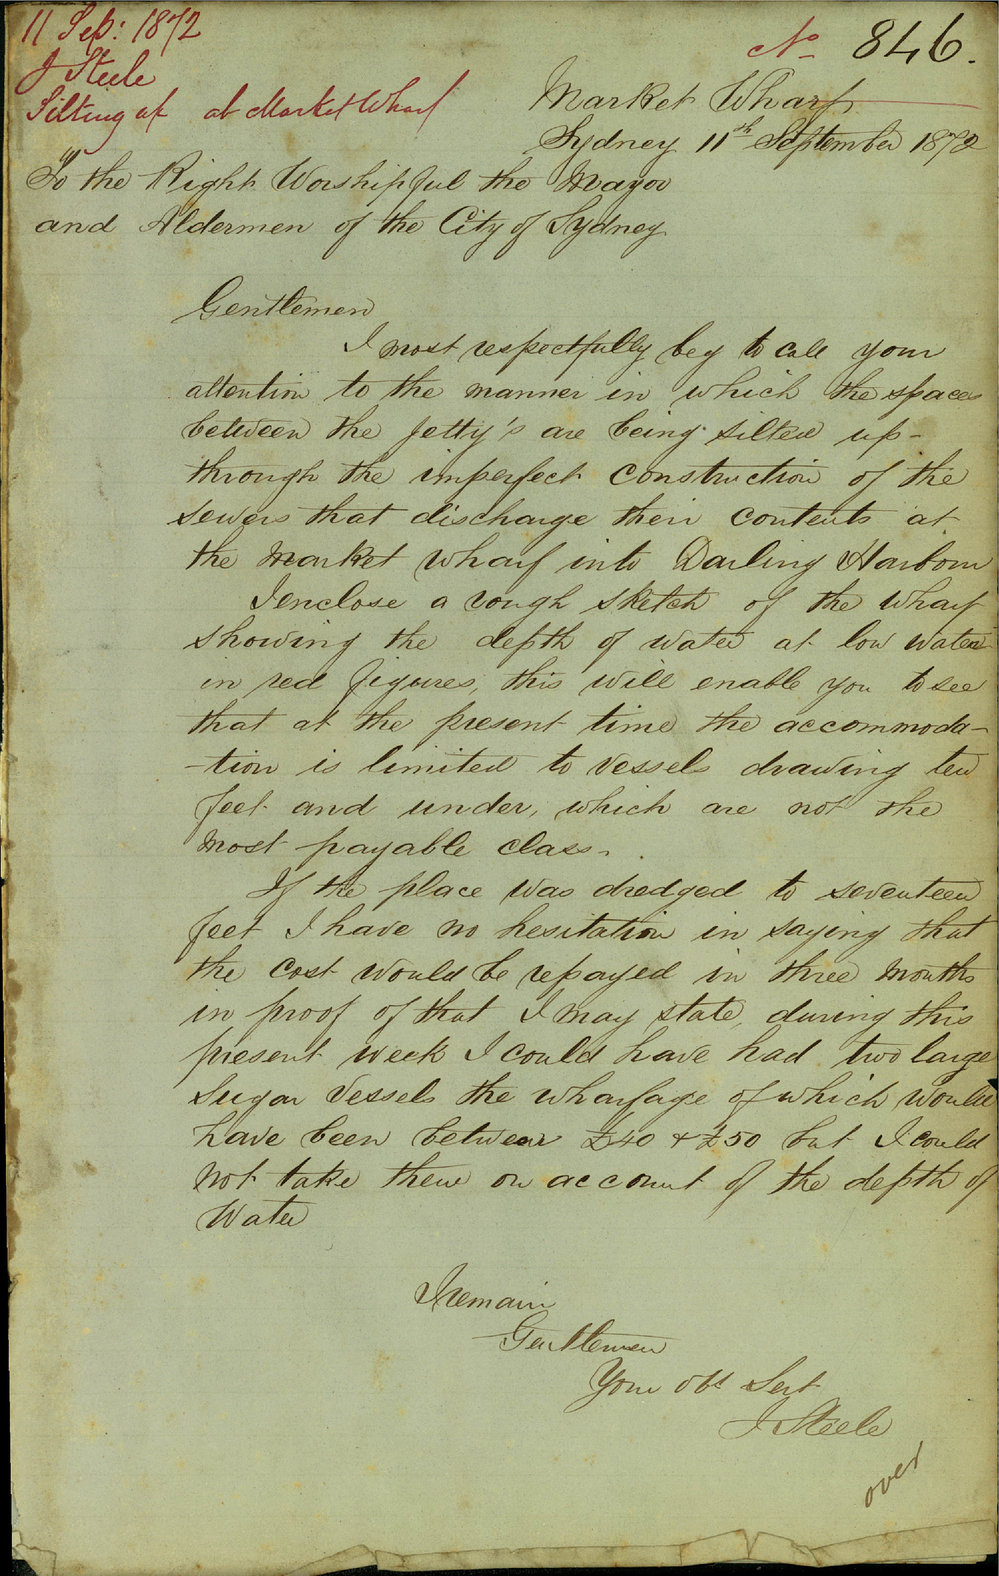 11 Sep: 1872
J Steele
Silting up at Market Wharf
No 846.
Market Wharf
Sydney 11th September 1872
To the Right Worshipful the Mayor
and Aldermen of the City of Sydney
Gentlemen
I most respectfully beg to call your
attention to the manner in which the spaces
between the Jetty's are being silted up-
through the imperfect construction of the
sewers that discharge their contents at
the Market Wharf into Darling Harbour
I enclose a rough sketch of the Wharf
showing the depth of water at low water
in red figures, this will enable you to see
that at the present time the accommoda-
-tion is limited to vessels drawing ten
feet and under, which are not the
most payable class.
If the place was dredged to seventeen
feet I have no hesitation in saying that
the cost would be repayed in three months
in proof of that I may state, during this
present week I could have had two large
Sugar Vessels the wharfage of which would
have been between £40 & £50 but I could
not take them on account of the depth of
Water
I remain
Gentlemen
Your obt Sert
J Steele
over